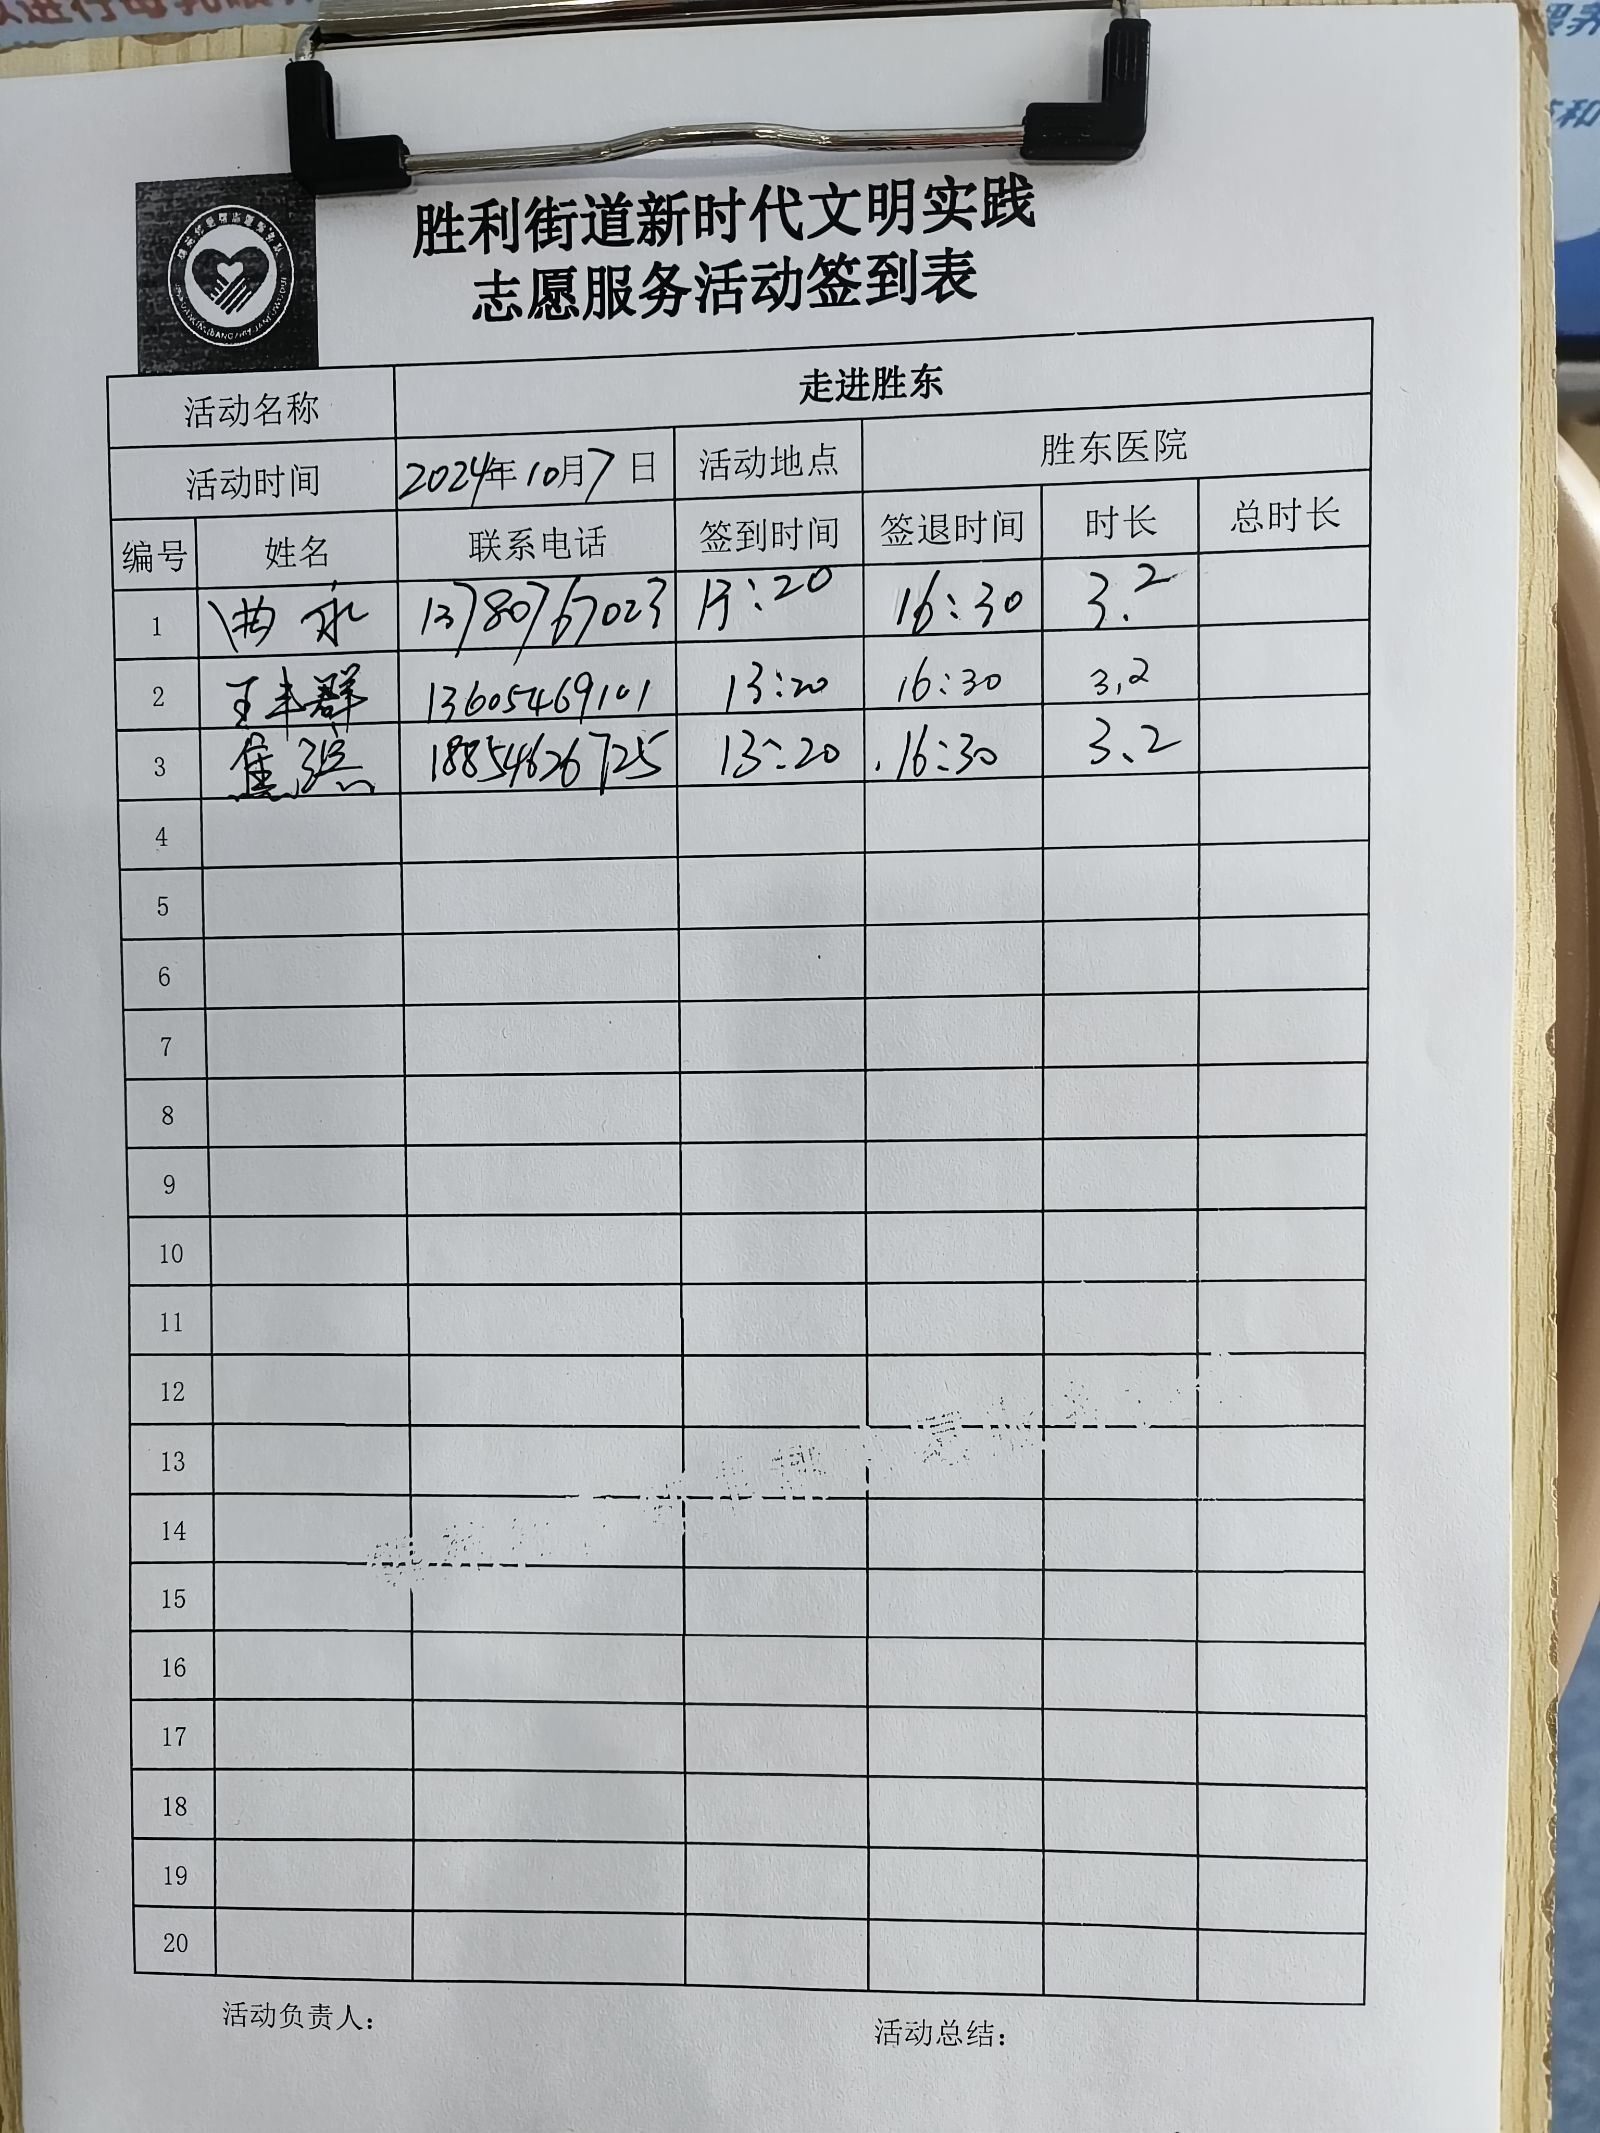 胜利街道新时代文明实践
志愿服务活动签到表
活动名称 走进胜东
活动时间 2024年10月7日 活动地点 胜东医院
编号 姓名 联系电话 签到时间 签退时间 时长 总时长
1 曲永 13780767023 13:20 16:30 3.2
2 王丰群 13605469101 13:20 16:30 3.2
3 焦强 18854626725 13:20 16:30 3.2
4
5
6
7
8
9
10
11
12
13
14
15
16
17
18
19
20
活动负责人： 活动总结：